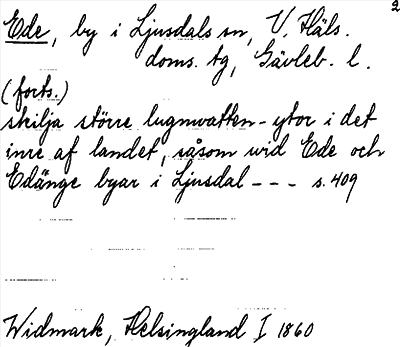 2
Ede, by i Ljusdals sn, V. Häls.
doms. tg, Gävleb. l.
(forts.)
skilja större lugnvatten-ytor i det
inre af landet, såsom wid Ede och
Edänge byar i Ljusdal --- s. 409
Widmark, Helsingland I 1860